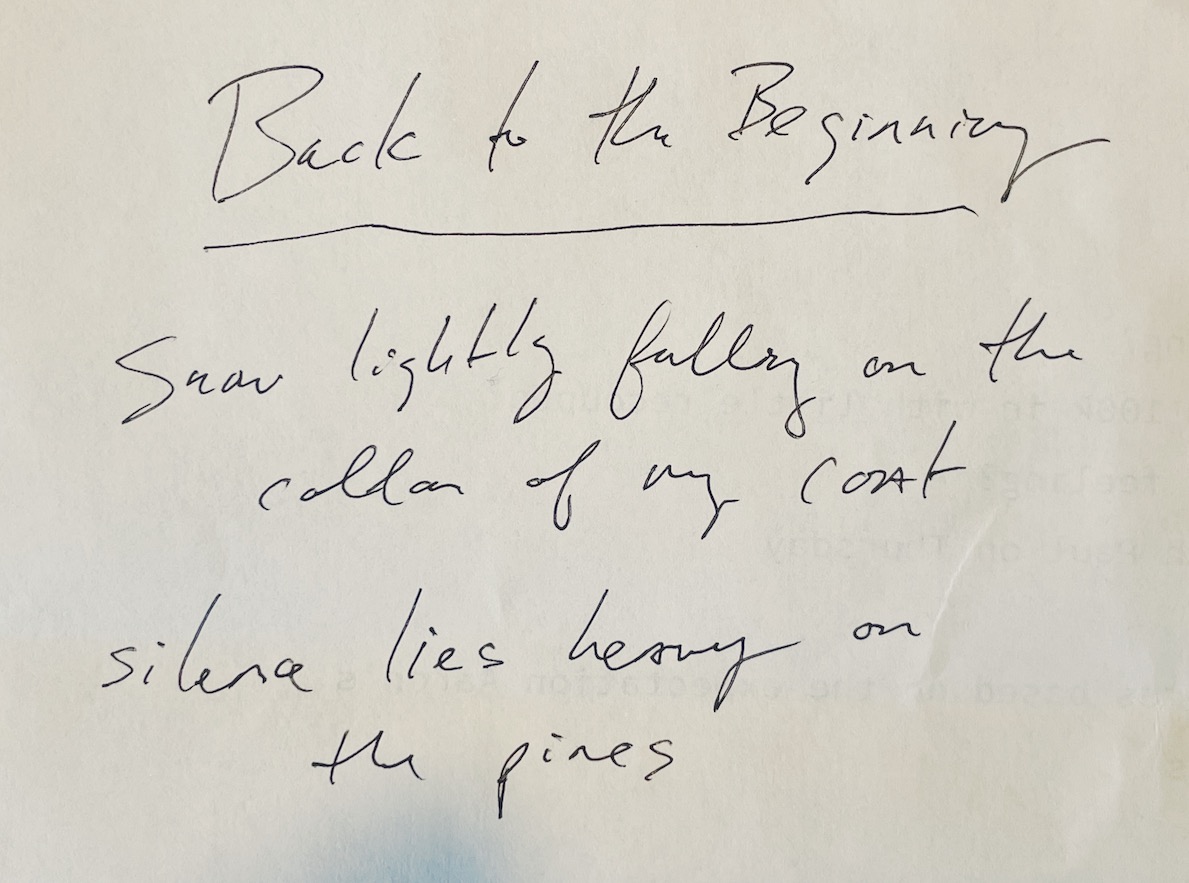 Back to the Beginning
Snow lightly falling on the
collar of my coat
silence lies heavy on
the pines